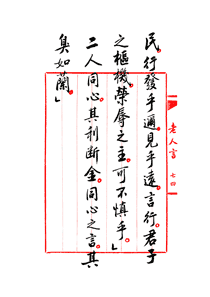 民。行發乎邇。見乎遠。言行。君子
之樞機。榮辱之主。可不慎乎。」
二人同心。其利斷金。同心之言。其
臭如蘭。」
老人言 七四